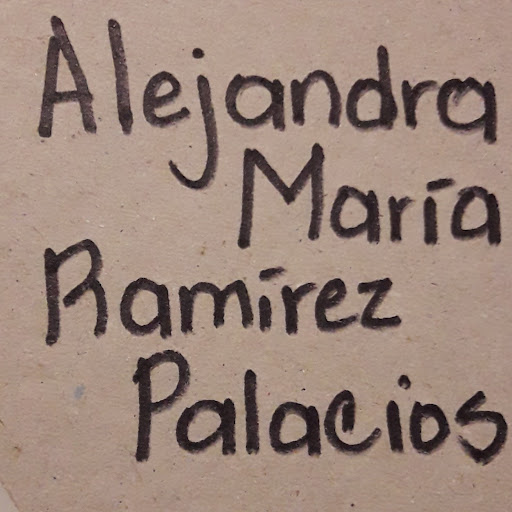 Alejandra
María
Ramírez
Palacios